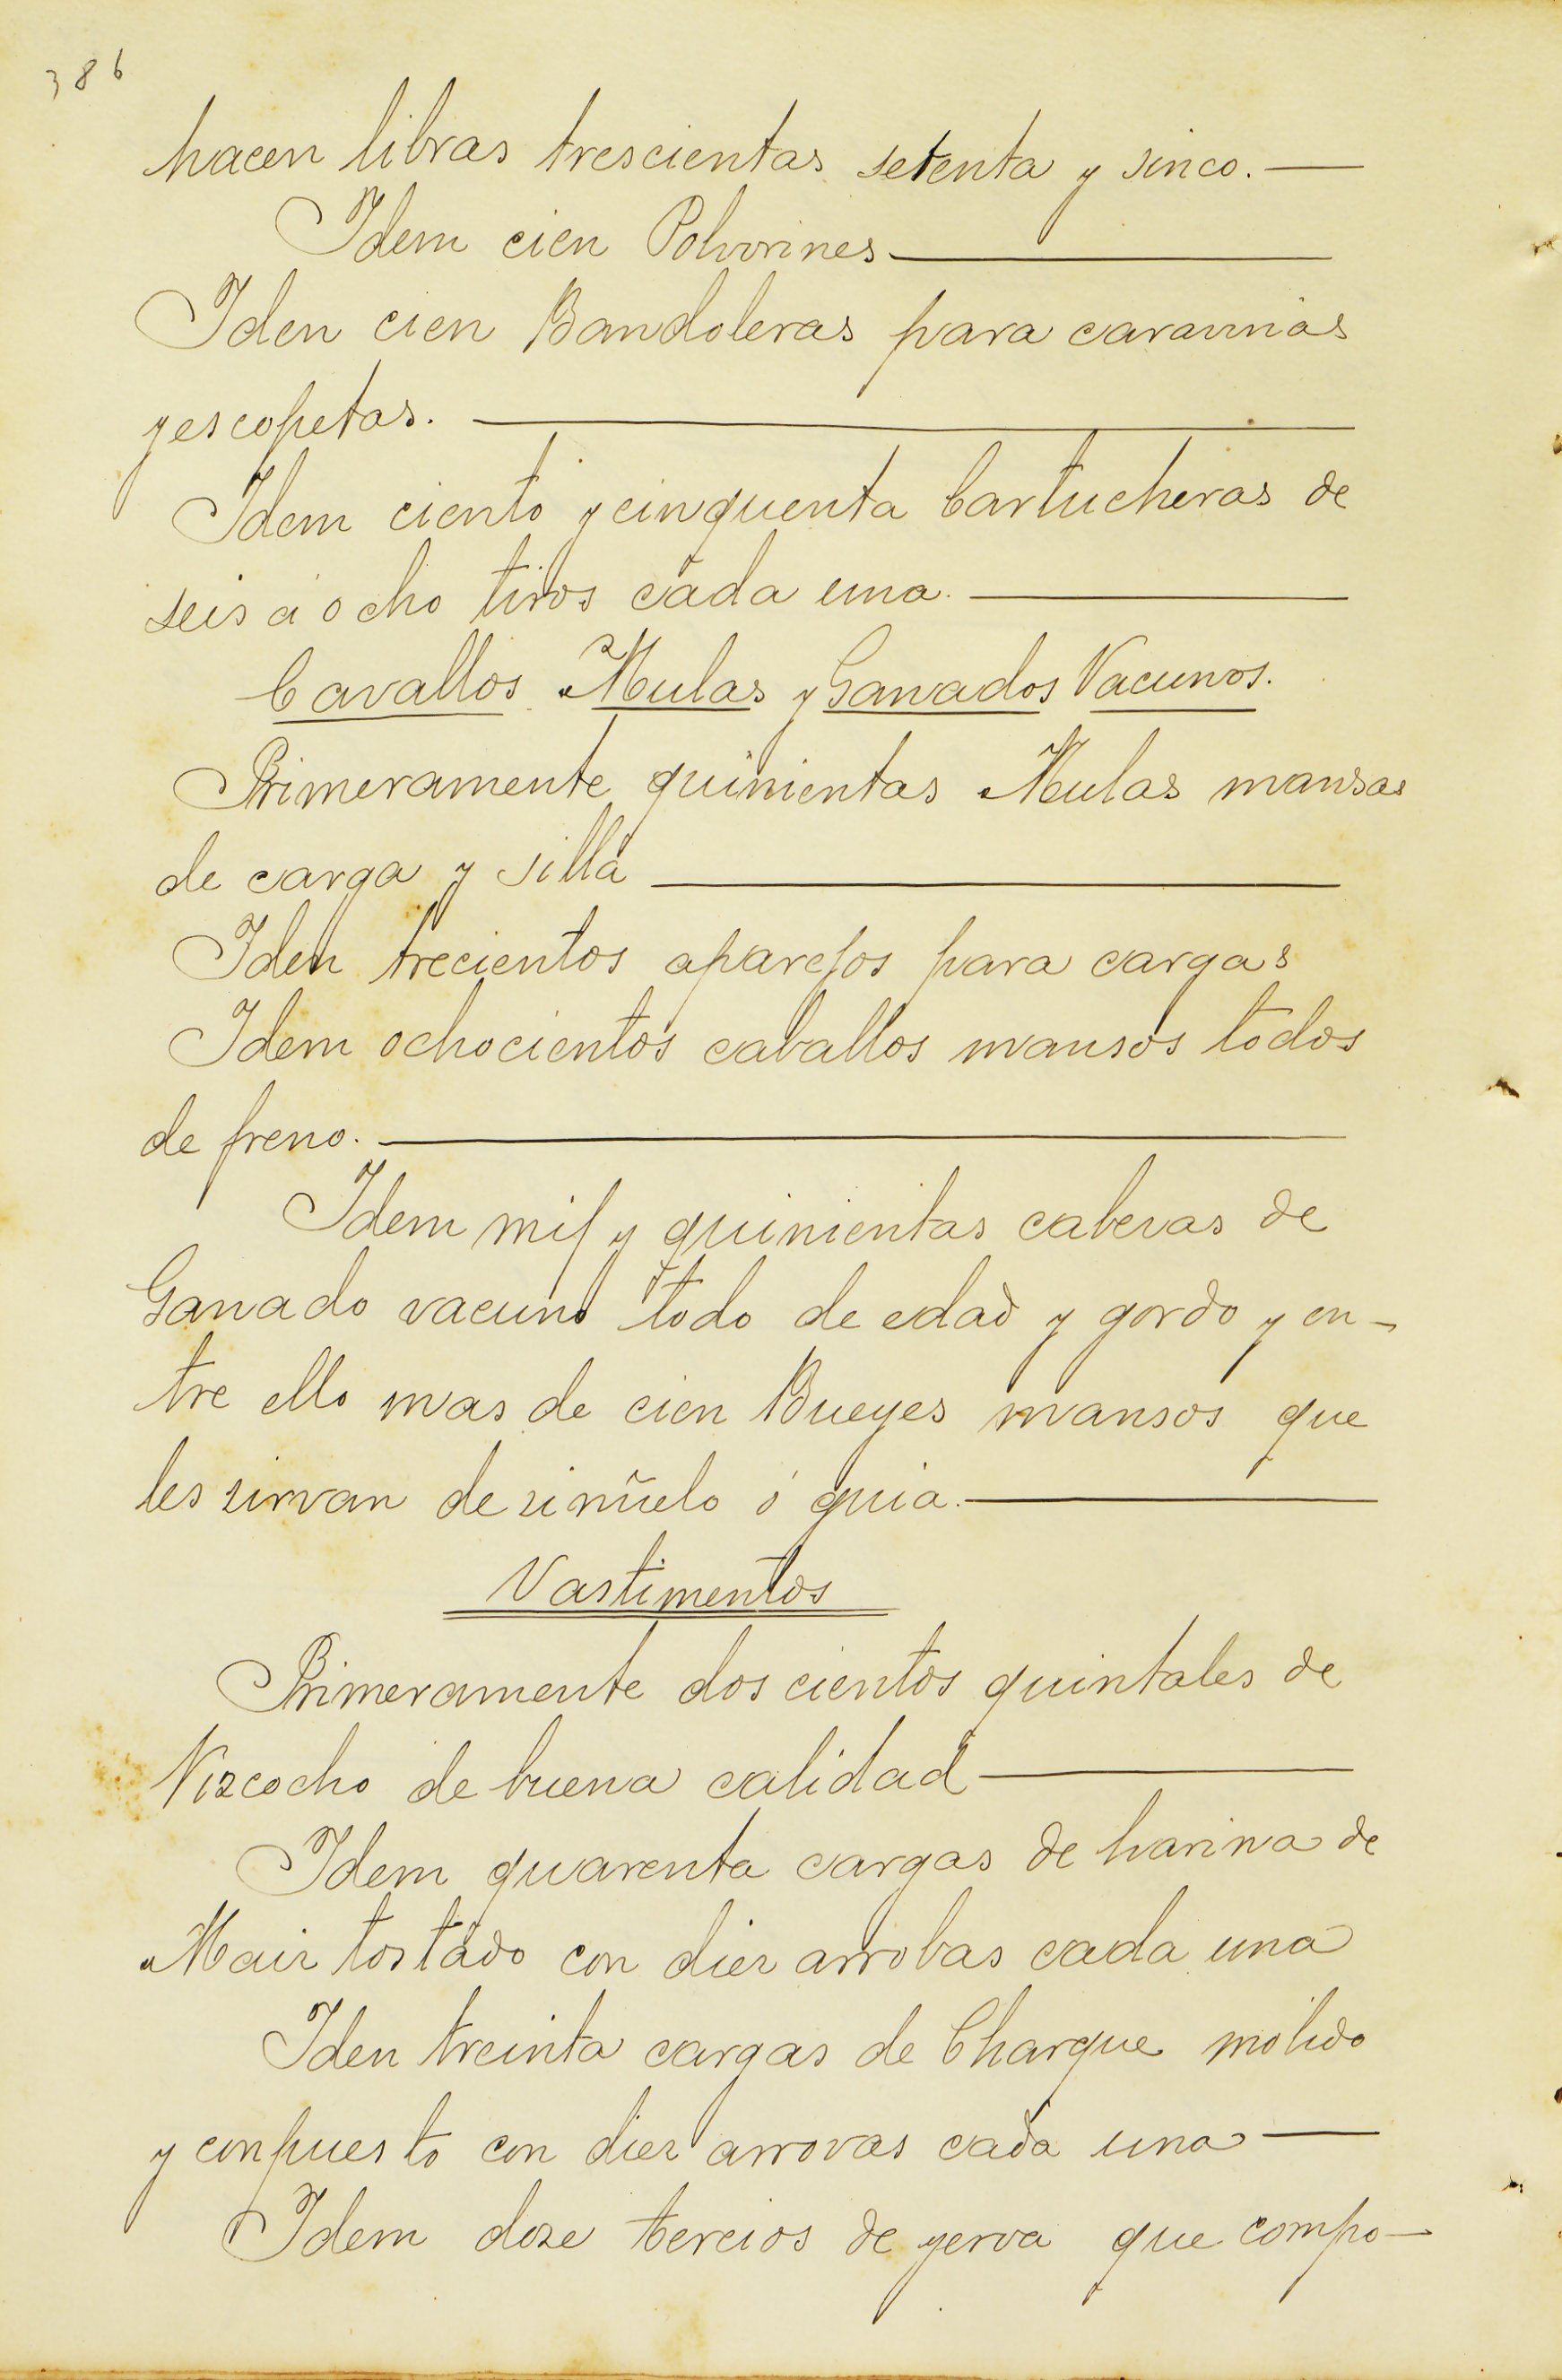 386
hacen libras trescientas setenta y sinco. —
Idem cien Polvorines —
Iden cien Bandoleras para caravinas
y escopetas. —
Idem ciento y cinquenta Cartucheras de
seis á ocho tiros cada una. —
Cavallos Mulas y Ganados Vacunos.
Primeramente quinientas Mulas mansas
de carga y silla —
Iden trecientos aparejos para cargas
Idem ochocientos caballos mansos todos
de freno. —
Idem mil y quinientas cabezas de
Ganado vacuno todo de edad y gordo y en-
tre ello mas de cien Bueyes mansos que
les sirvan de siñuelo ó guia. —
Vastimentos
Primeramente dos cientos quintales de
Vizcocho de buena calidad —
Idem quarenta cargas de harina de
Maiz tostado con diez arrobas cada una
Iden treinta cargas de Charque molido
y conpuesto con diez arrovas cada una —
Idem doze tercios de yerva que compo-